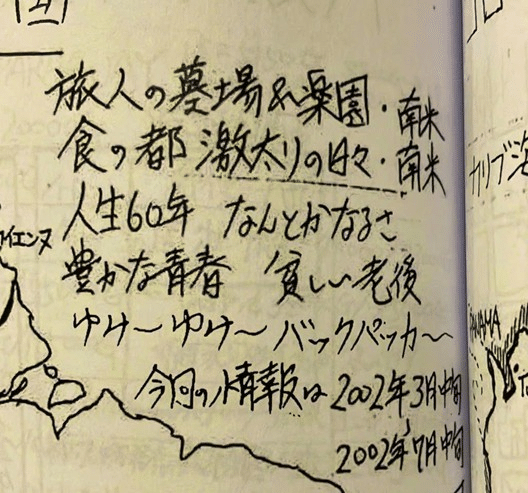 旅人の墓場&楽園・南米
食の都 激太りの日々・南米
人生60年 なんとかなるさ
豊かな青春 貧しい老後
ゆけ〜ゆけ〜バックパッカ〜
今回の情報は2002年3月中旬
2002年7月中旬
イエンヌ
カリブ海
PANAMA